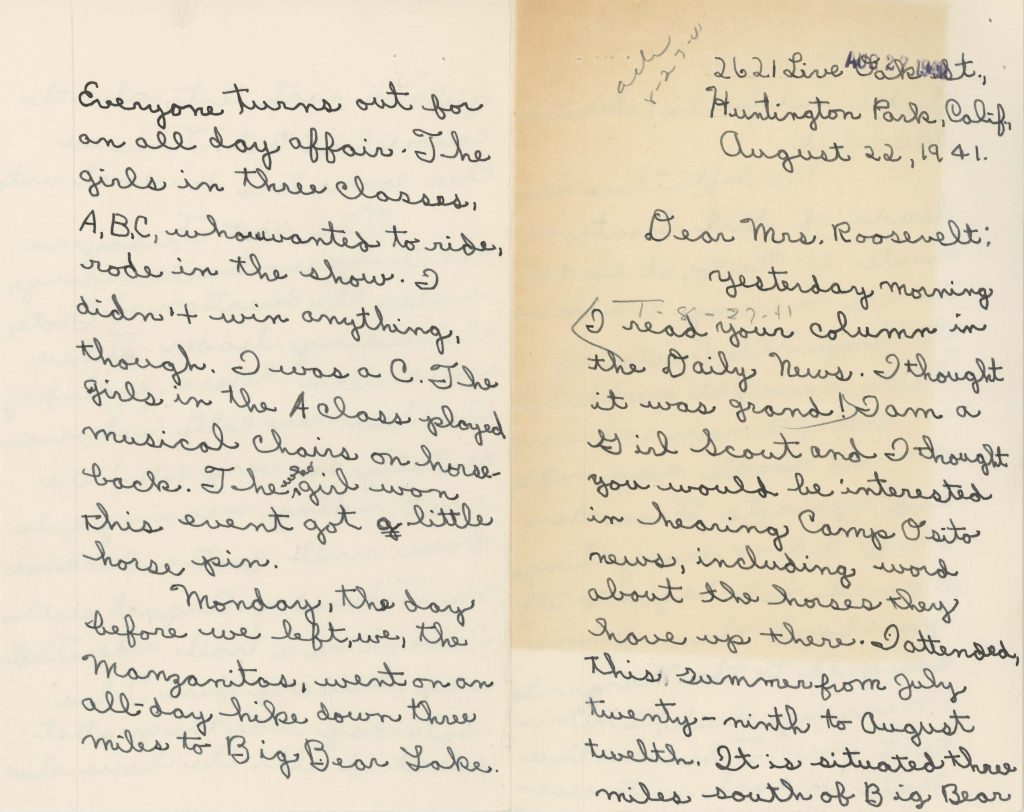 ack
8-27-41
2621 Live Oak St.,
Huntington Park, Calif.
August 22, 1941.
Dear Mrs. Roosevelt:
Yesterday morning
T-8-27-41
I read your column in
the Daily News. I thought
it was grand! I am a
Girl Scout and I thought
you would be interested
in hearing Camp Osito
news, including word
about the horses they
have up there. I attended,
this, summer from July
twenty-ninth to August
twelth. It is situated three
miles south of Big Bear
Everyone turns out for
an all day affair. The
girls in three classes,
A, B, C, who wanted to ride,
rode in the show. I
didn't win anything,
though. I was a C. The
girls in the A class played
musical chairs on horse-
back. The girl won
this event got a little
horse pin.
Monday, the day
before we left, we, the
Manzanitas, went on an
all-day hike down three
miles to Big Bear Lake.